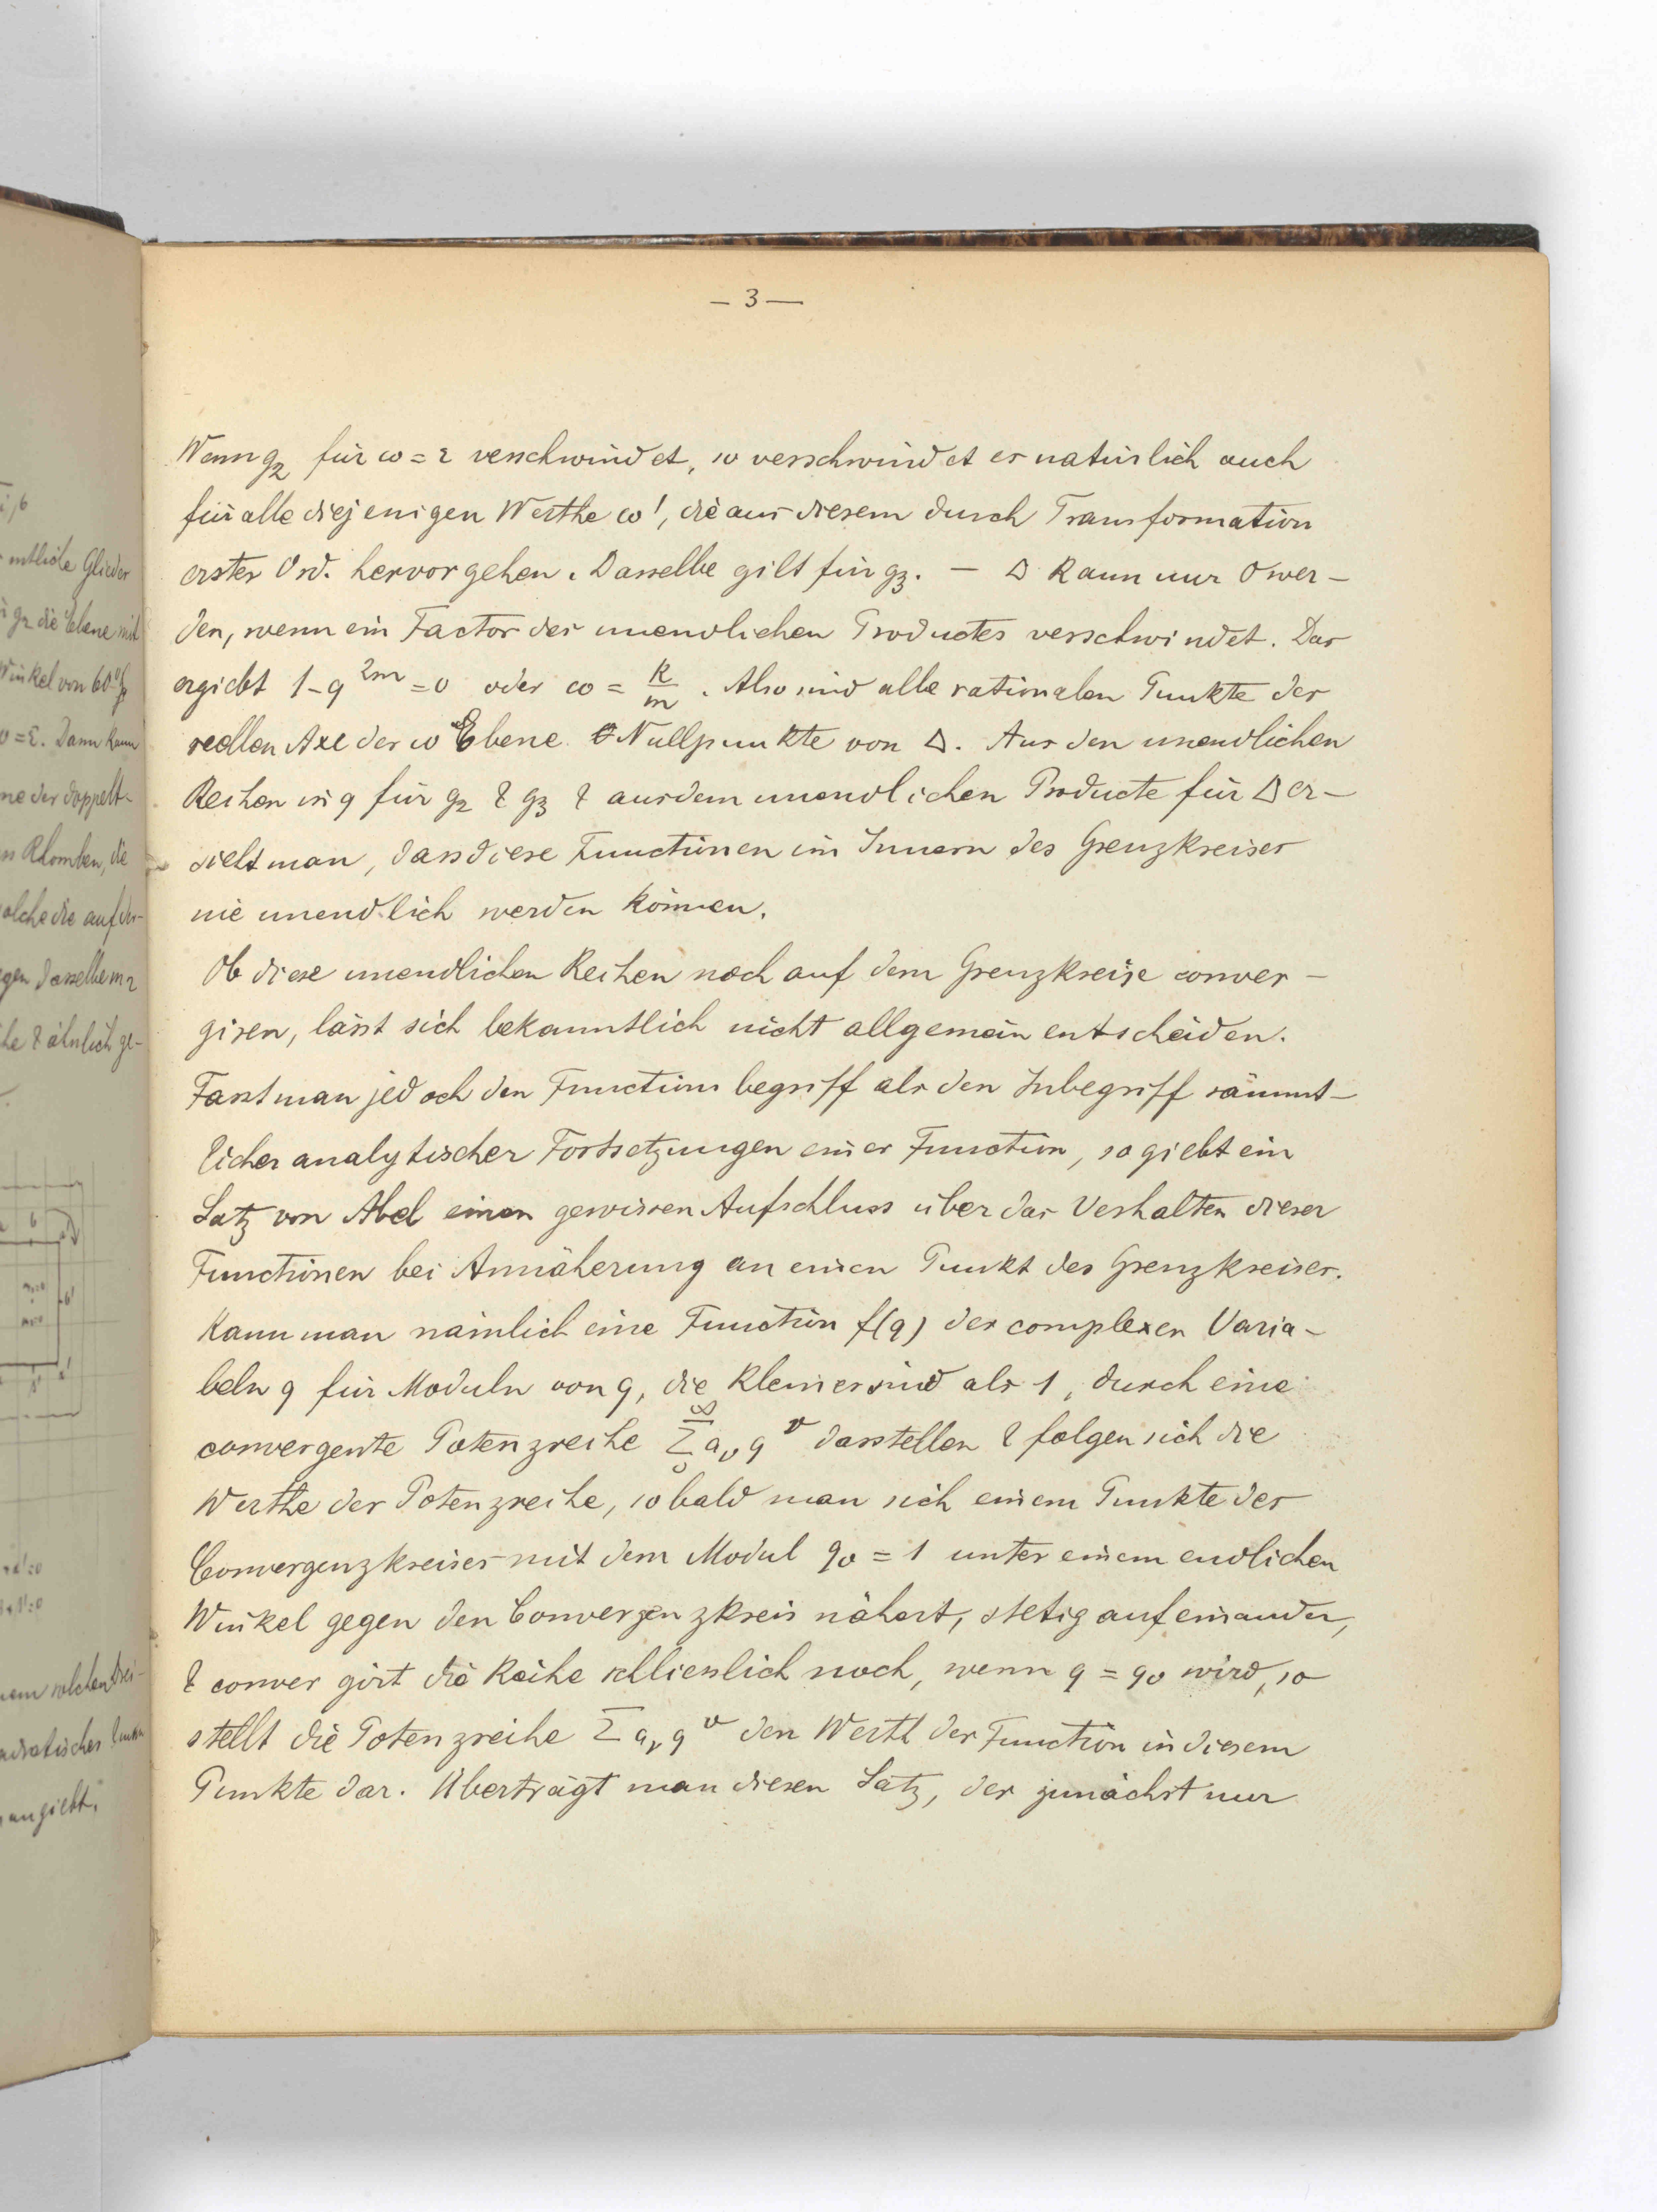 — 3 —
Wenn g₂ für ω = ε verschwindet, so verschwindet es natürlich auch
für alle diejenigen Werthe ω', die aus diesem durch Transformation
erster Ord. hervorgehen. Dasselbe gilt für g₃. — Δ kann nur 0 wer-
den, wenn ein Factor des unendlichen Productes verschwindet. Das
ergiebt 1 - q^{2m} = 0 oder ω = k/m. Also sind alle rationalen Punkte der
reellen Axe der ω Ebene Nullpunkte von Δ. Aus den unendlichen
Reihen in q für g₂ & g₃ & aus dem unendlichen Producte für Δ er-
sieht man, dass diese Functionen im Innern des Grenzkreises
nie unendlich werden können.
Ob diese unendlichen Reihen noch auf dem Grenzkreise conver-
giren, lässt sich bekanntlich nicht allgemein entscheiden.
Fasst man jedoch den Functionsbegriff als den Inbegriff sämmt-
licher analytischer Fortsetzungen einer Function, so giebt ein
Satz von Abel einen gewissen Aufschluss über das Verhalten dieser
Functionen bei Annäherung an einen Punkt des Grenzkreises.
Kann man nämlich eine Function f(q) der complexen Varia-
beln q für Moduln von q, die kleiner sind als 1, durch eine
convergente Potenzreihe ∑₀^∞ a_ν q^ν darstellen & folgen sich die
Werthe der Potenzreihe, sobald man sich einem Punkte des
Convergenzkreises mit dem Modul q₀ = 1 unter einem endlichen
Winkel gegen den Convergenzkreis nähert, stetig aufeinander,
& convergirt die Reihe schliesslich noch, wenn q = q₀ wird, so
stellt die Potenzreihe ∑ a_ν q^ν den Werth der Function in diesem
Punkte dar. Überträgt man diesen Satz, der zunächst nur